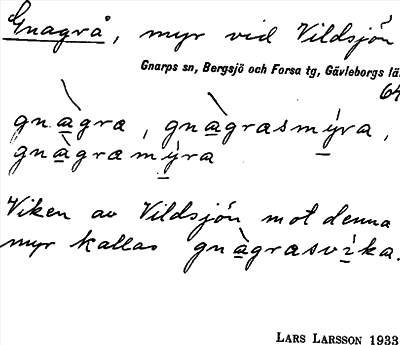 Gnagrå, myr vid Vildsjön
Gnarps sn, Bergsjö och Forsa tg, Gävleborgs lä
64
gnàgra, gnàgrasmýra,
gnàgramýra
Viken av Vildsjön mot denna
myr kallas gnàgrasvìka.
LARS LARSSON 1933